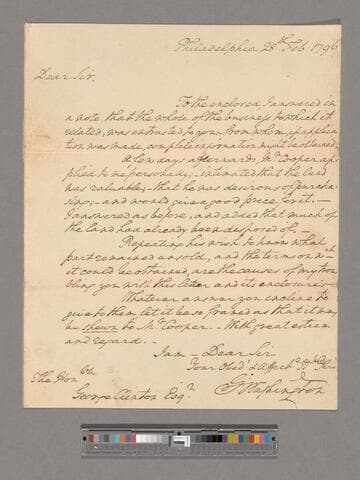 Philadelphia 28th Feb. 1796
Dear Sir,
To the enclosed I answered in
a note, that the whole of the business to which it
related, was entrusted to you - from whom, if applica-
tion was made, complete information might be obtained.
A few days afterwards, Mr Cooper ap-
plied to me personally; - intimated that the land
was valuable, - that he was desirous of purcha-
sing; - and would give a good price for it. -
I answered as before, and added that much of
the land had already been disposed of. -
Repeating his wish to know what
part remained unsold, and the terms on wch
it could be obtained, are the causes of my trou
bling you with this letter and its enclosure. -
Whatever answer you incline to
give to them, let it be so framed as that it may
be shewn to Mr Cooper. - With great esteem
and regard. -
I am - Dear Sir
Your Obedt & Affecte Hble Ser
The Honble
George Clinton Esqr.
Go Washington